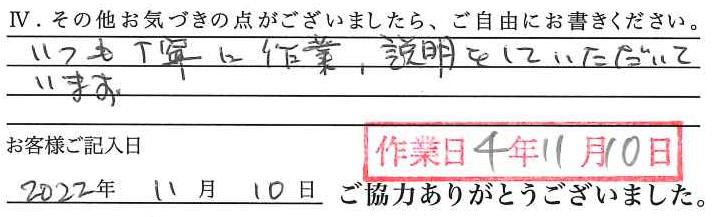 Ⅳ．その他お気づきの点がございましたら、ご自由にお書きください。
いつも丁寧に作業，説明をしていただいて
います。
お客様ご記入日
作業日4年11月10日
2022年 11月 10日 ご協力ありがとうございました。